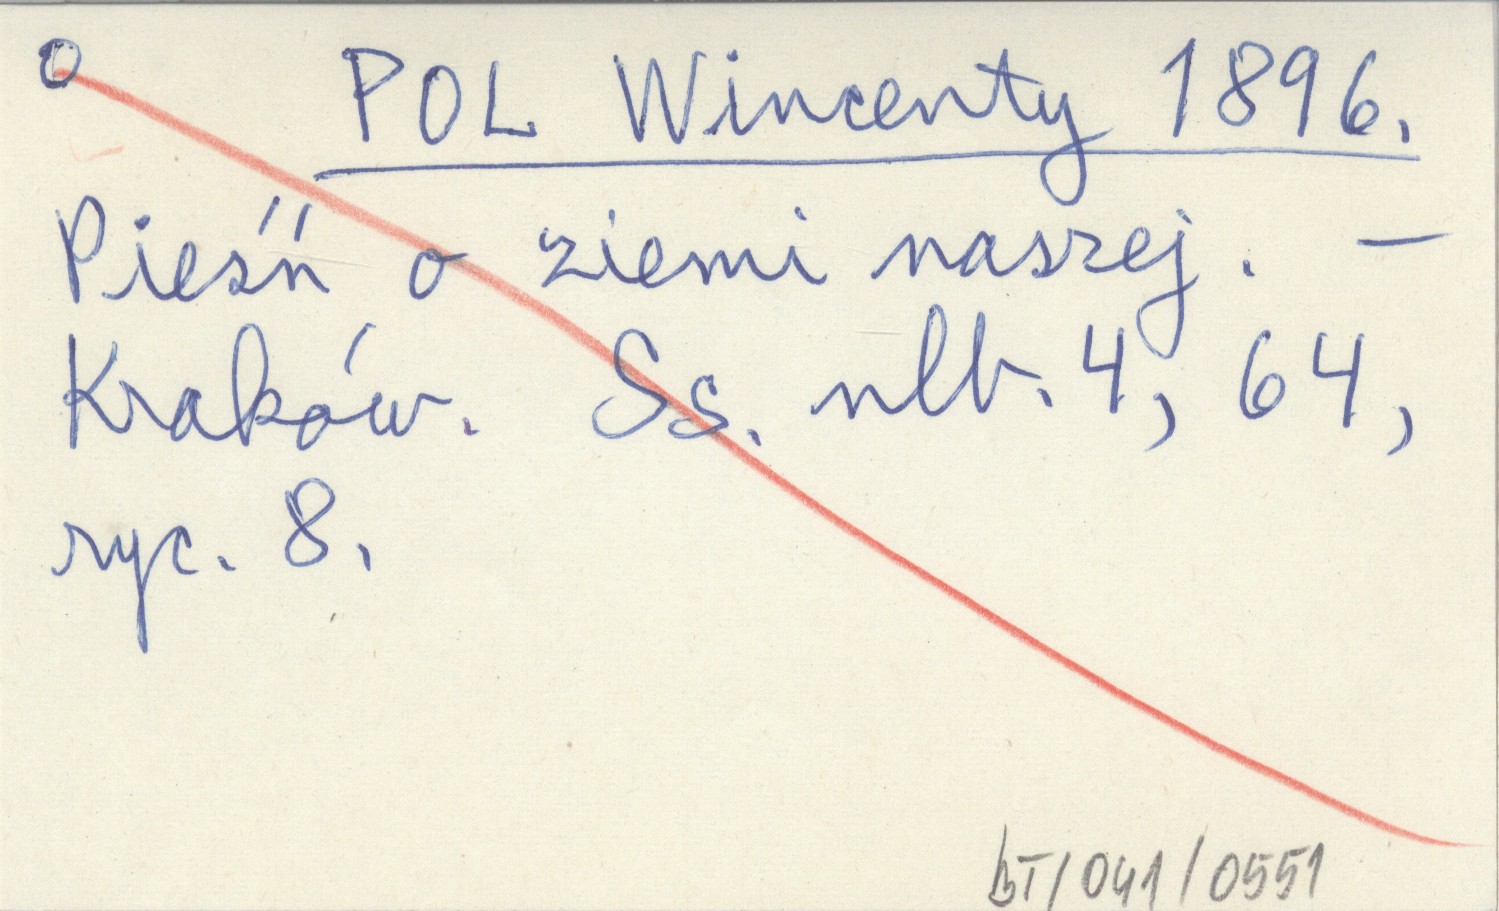 o POL Wincenty 1896.
Pieśń o ziemi naszej. —
Kraków. Ss. nlb. 4, 64,
ryc. 8.
BT/041/0551